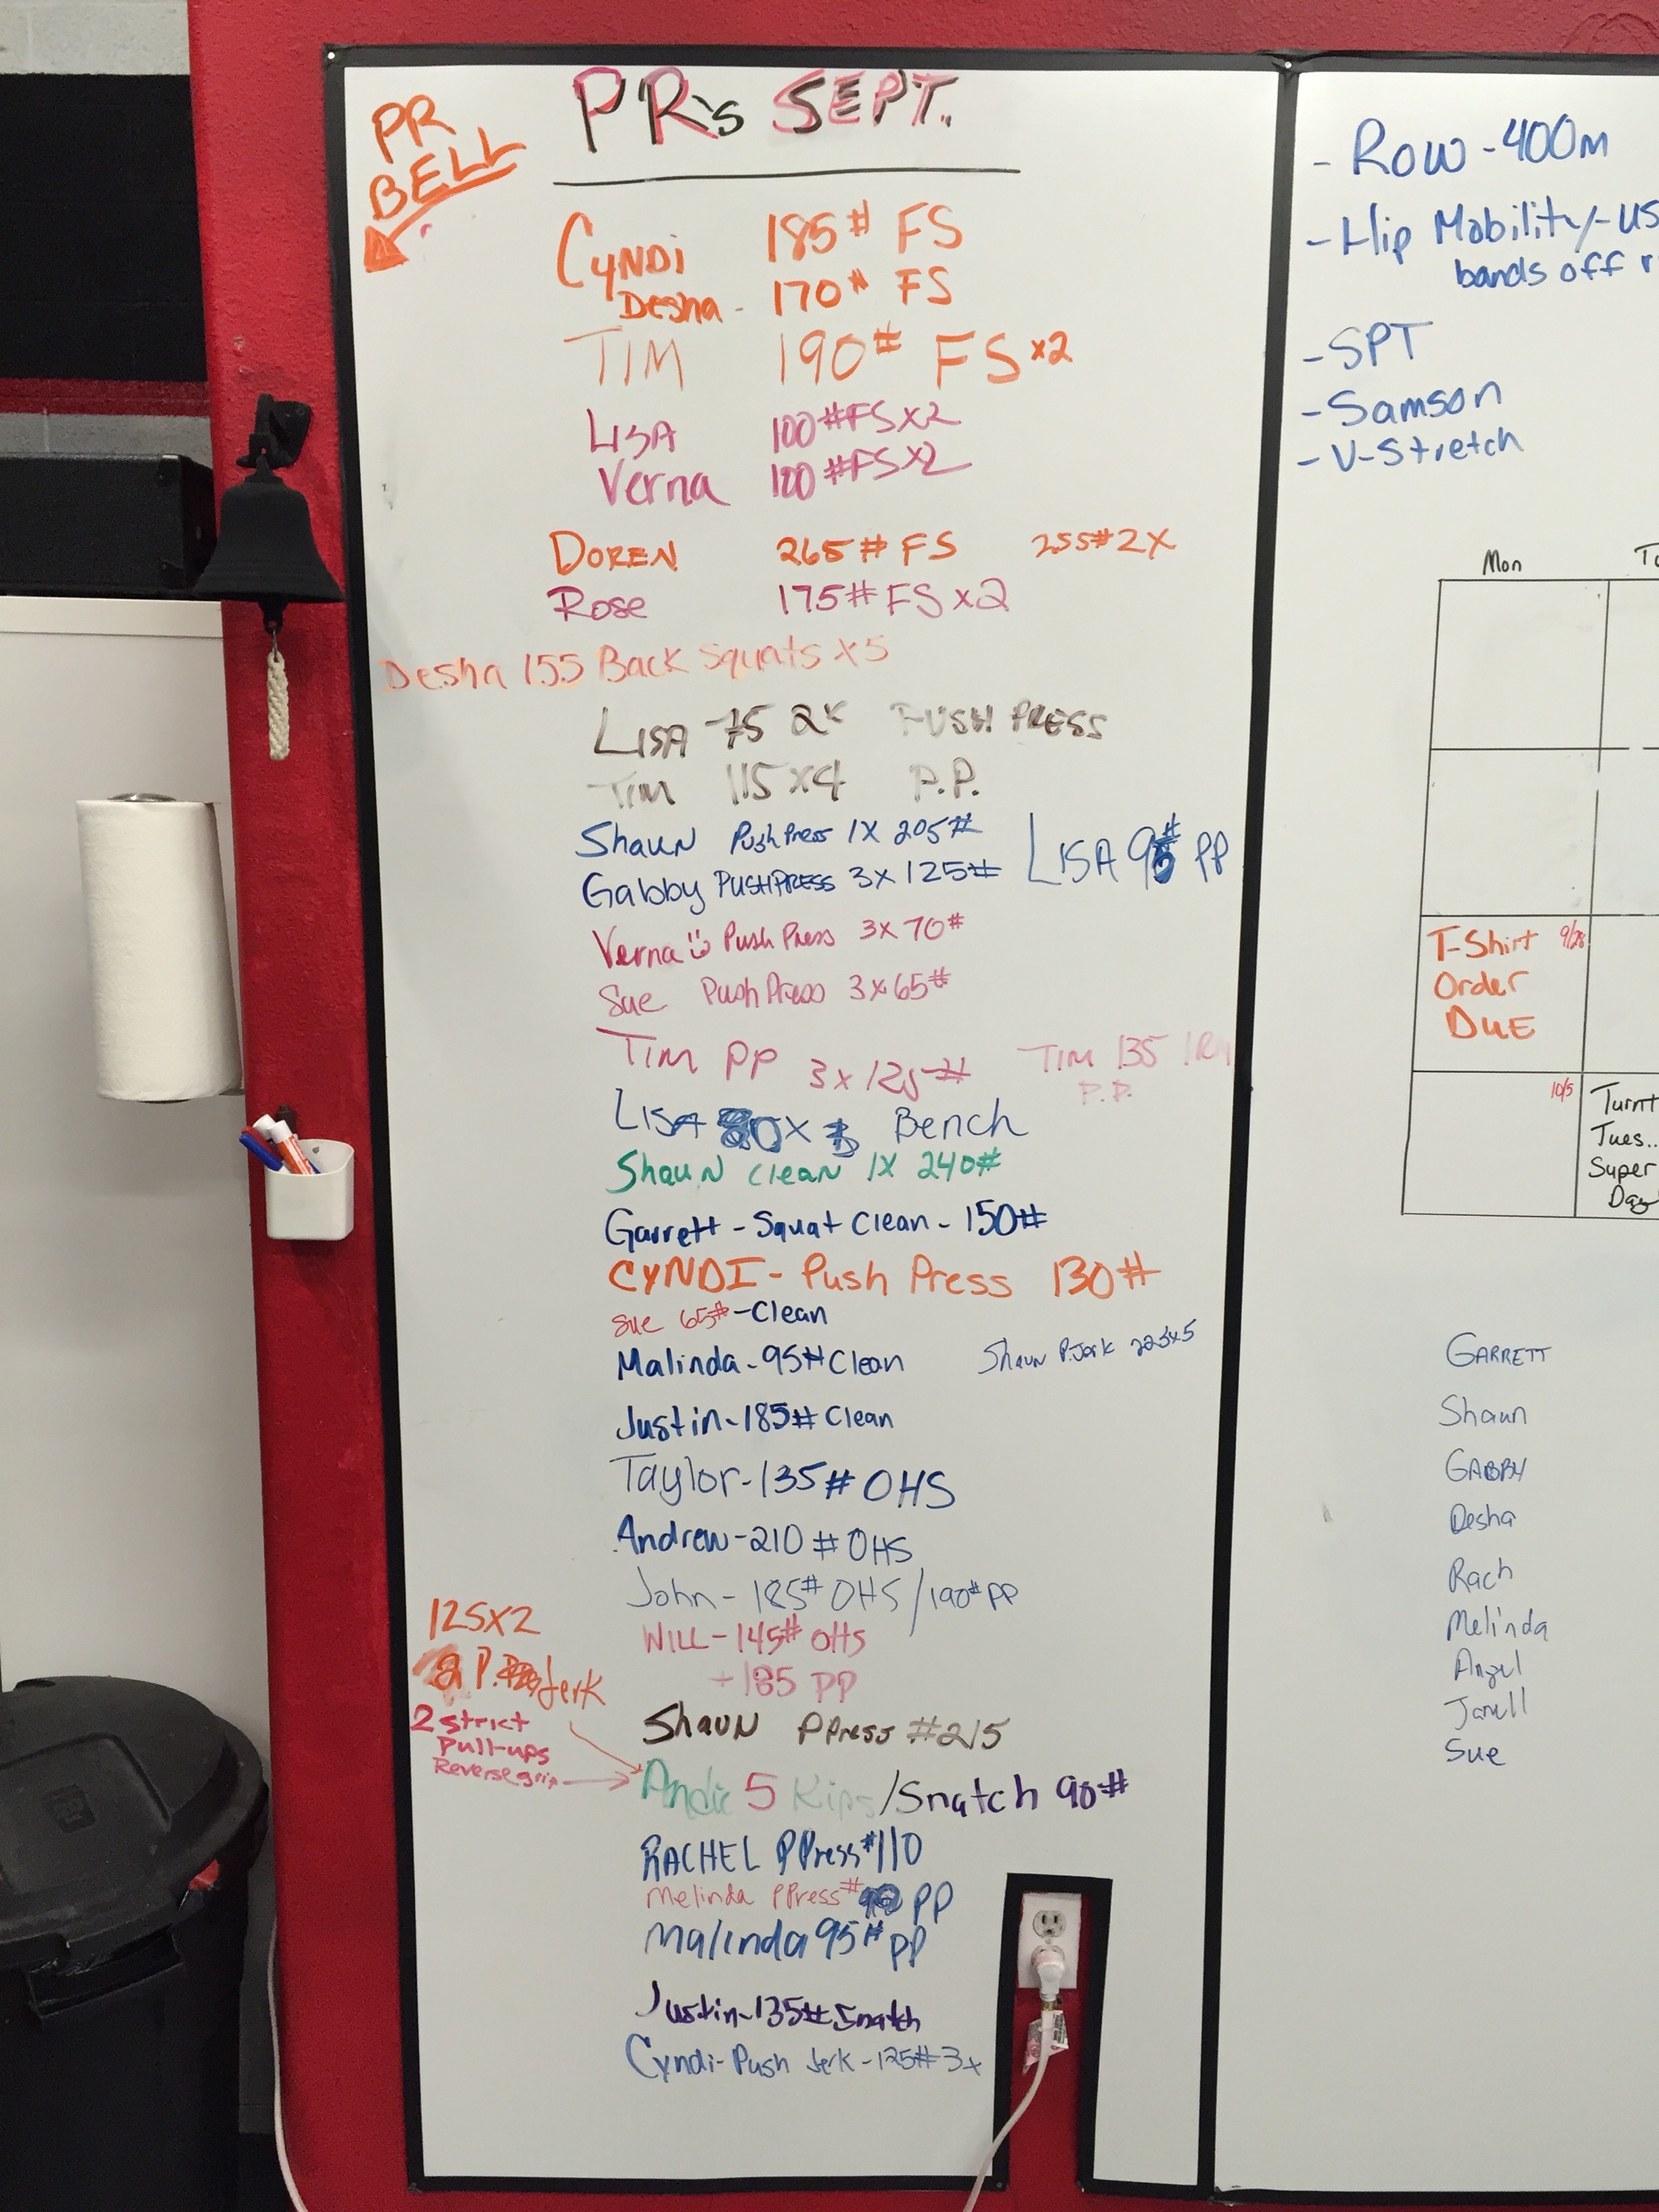 PR
BELL
PR's SEPT.
CYNDI 185# FS
Desha - 170# FS
TIM 190# FS x2
LISA 100#FS x2
Verna 100#FS x2
DOREN 265# FS 255# 2X
Rose 175# FS x2
Desha 155 Back Squats x5
LISA 75 2x PUSH PRESS
Tim 115 x4 P.P.
Shaun Push Press 1X 205#
LISA 95# PP
Gabby PUSHPRESS 3x 125#
Verna Push Press 3x 70#
Sue Push Press 3x65#
TIM PP 3x125#
TIM 135 1RM
P.P.
LISA 80 x Bench
Shaun Clean 1X 240#
Garrett - Squat Clean - 150#
CYNDI - Push Press 130#
Sue 65# - Clean
Malinda - 95# Clean
Shaun P.Jerk 225x5
Justin - 185# Clean
Taylor - 135# OHS
Andrew - 210 # OHS
John - 185# OHS / 190# PP
WILL - 145# OHS
+ 185 PP
125X2
P. Jerk
2 strict
Pull-ups
Reverse grip
Shaun PPress #215
Andie 5 Kips / Snatch 90#
RACHEL PPress #110
Melinda PPress # PP
Malinda 95# PP
Justin - 135# Snatch
Cyndi - Push Jerk - 125# 3x
- Row - 400m
- Hip Mobility - us
bands off
- SPT
- Samson
- V-Stretch
Mon
T-Shirt 9/28
Order
DUE
10/5
Turnt
Tues..
Super
Day
GARRETT
Shaun
GABBY
Desha
Rach
Melinda
Angel
Janell
Sue